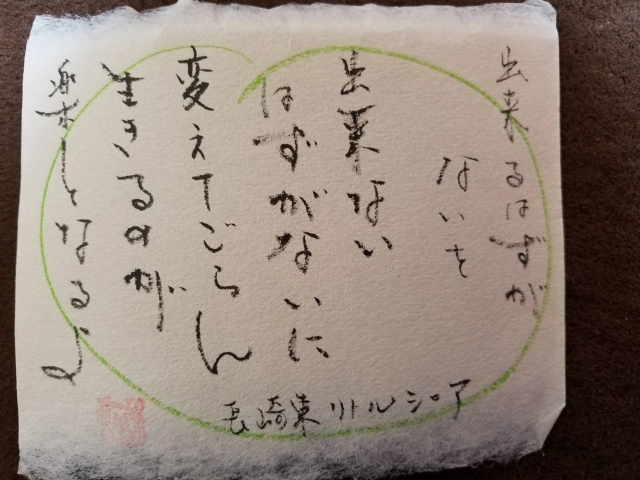 出来るはずが
ないを
出来ない
はずがないに
変えてごらん
生きるのが
楽しくなるよ
長崎東リトルシニア